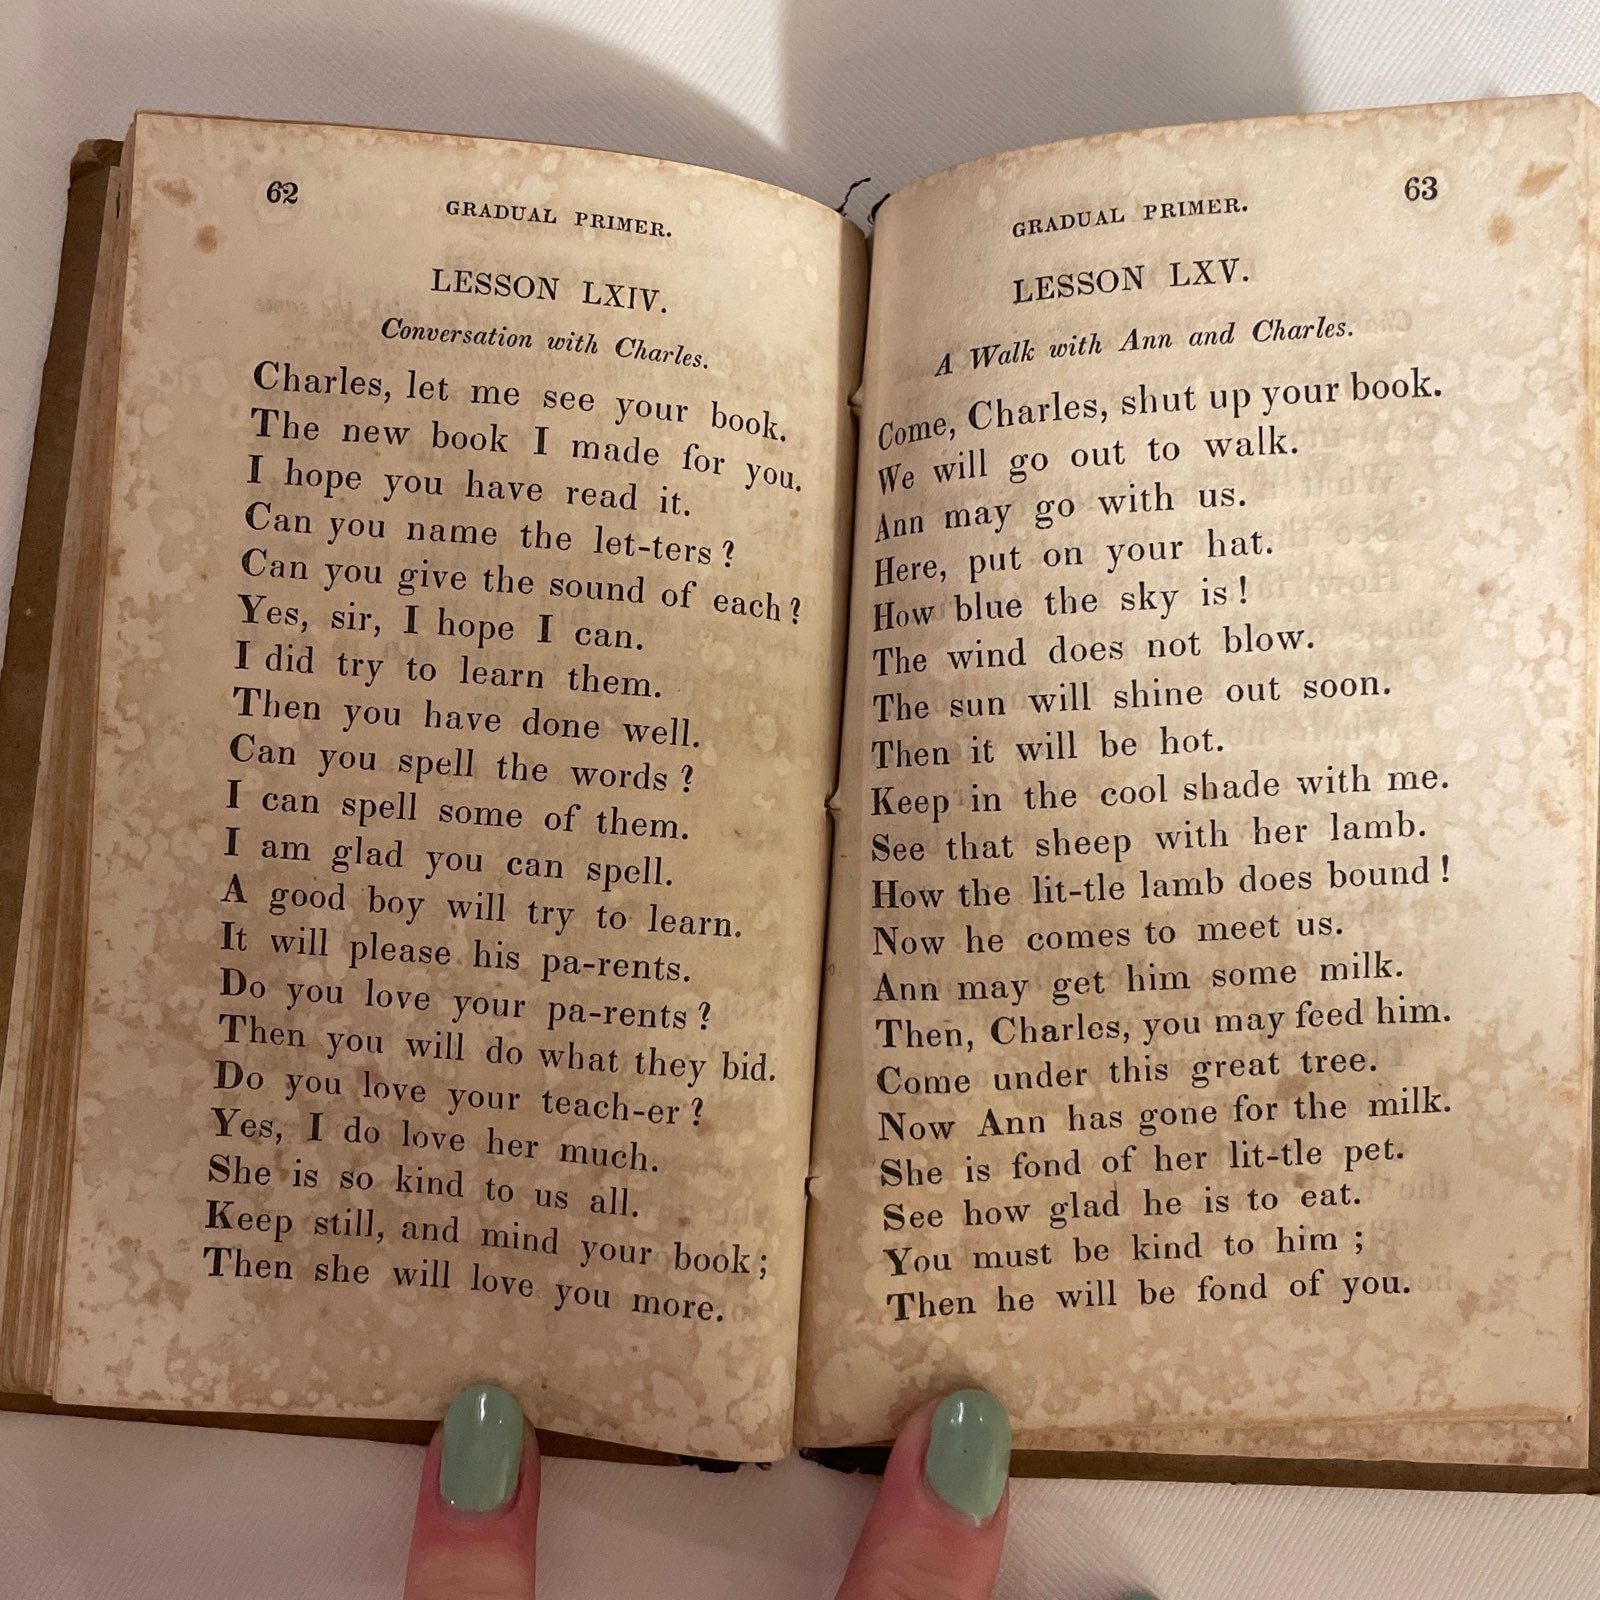 62
GRADUAL PRIMER.
LESSON LXIV.
Conversation with Charles.
Charles, let me see your book.
The new book I made for you.
I hope you have read it.
Can you name the let-ters?
Can you give the sound of each?
Yes, sir, I hope I can.
I did try to learn them.
Then you have done well.
Can you spell the words?
I can spell some of them.
I am glad you can spell.
A good boy will try to learn.
It will please his pa-rents.
Do you love your pa-rents?
Then you will do what they bid.
Do you love your teach-er?
Yes, I do love her much.
She is so kind to us all.
Keep still, and mind your book;
Then she will love you more.
63
GRADUAL PRIMER.
LESSON LXV.
A Walk with Ann and Charles.
Come, Charles, shut up your book.
We will go out to walk.
Ann may go with us.
Here, put on your hat.
How blue the sky is!
The wind does not blow.
The sun will shine out soon.
Then it will be hot.
Keep in the cool shade with me.
See that sheep with her lamb.
How the lit-tle lamb does bound!
Now he comes to meet us.
Ann may get him some milk.
Then, Charles, you may feed him.
Come under this great tree.
Now Ann has gone for the milk.
She is fond of her lit-tle pet.
See how glad he is to eat.
You must be kind to him;
Then he will be fond of you.